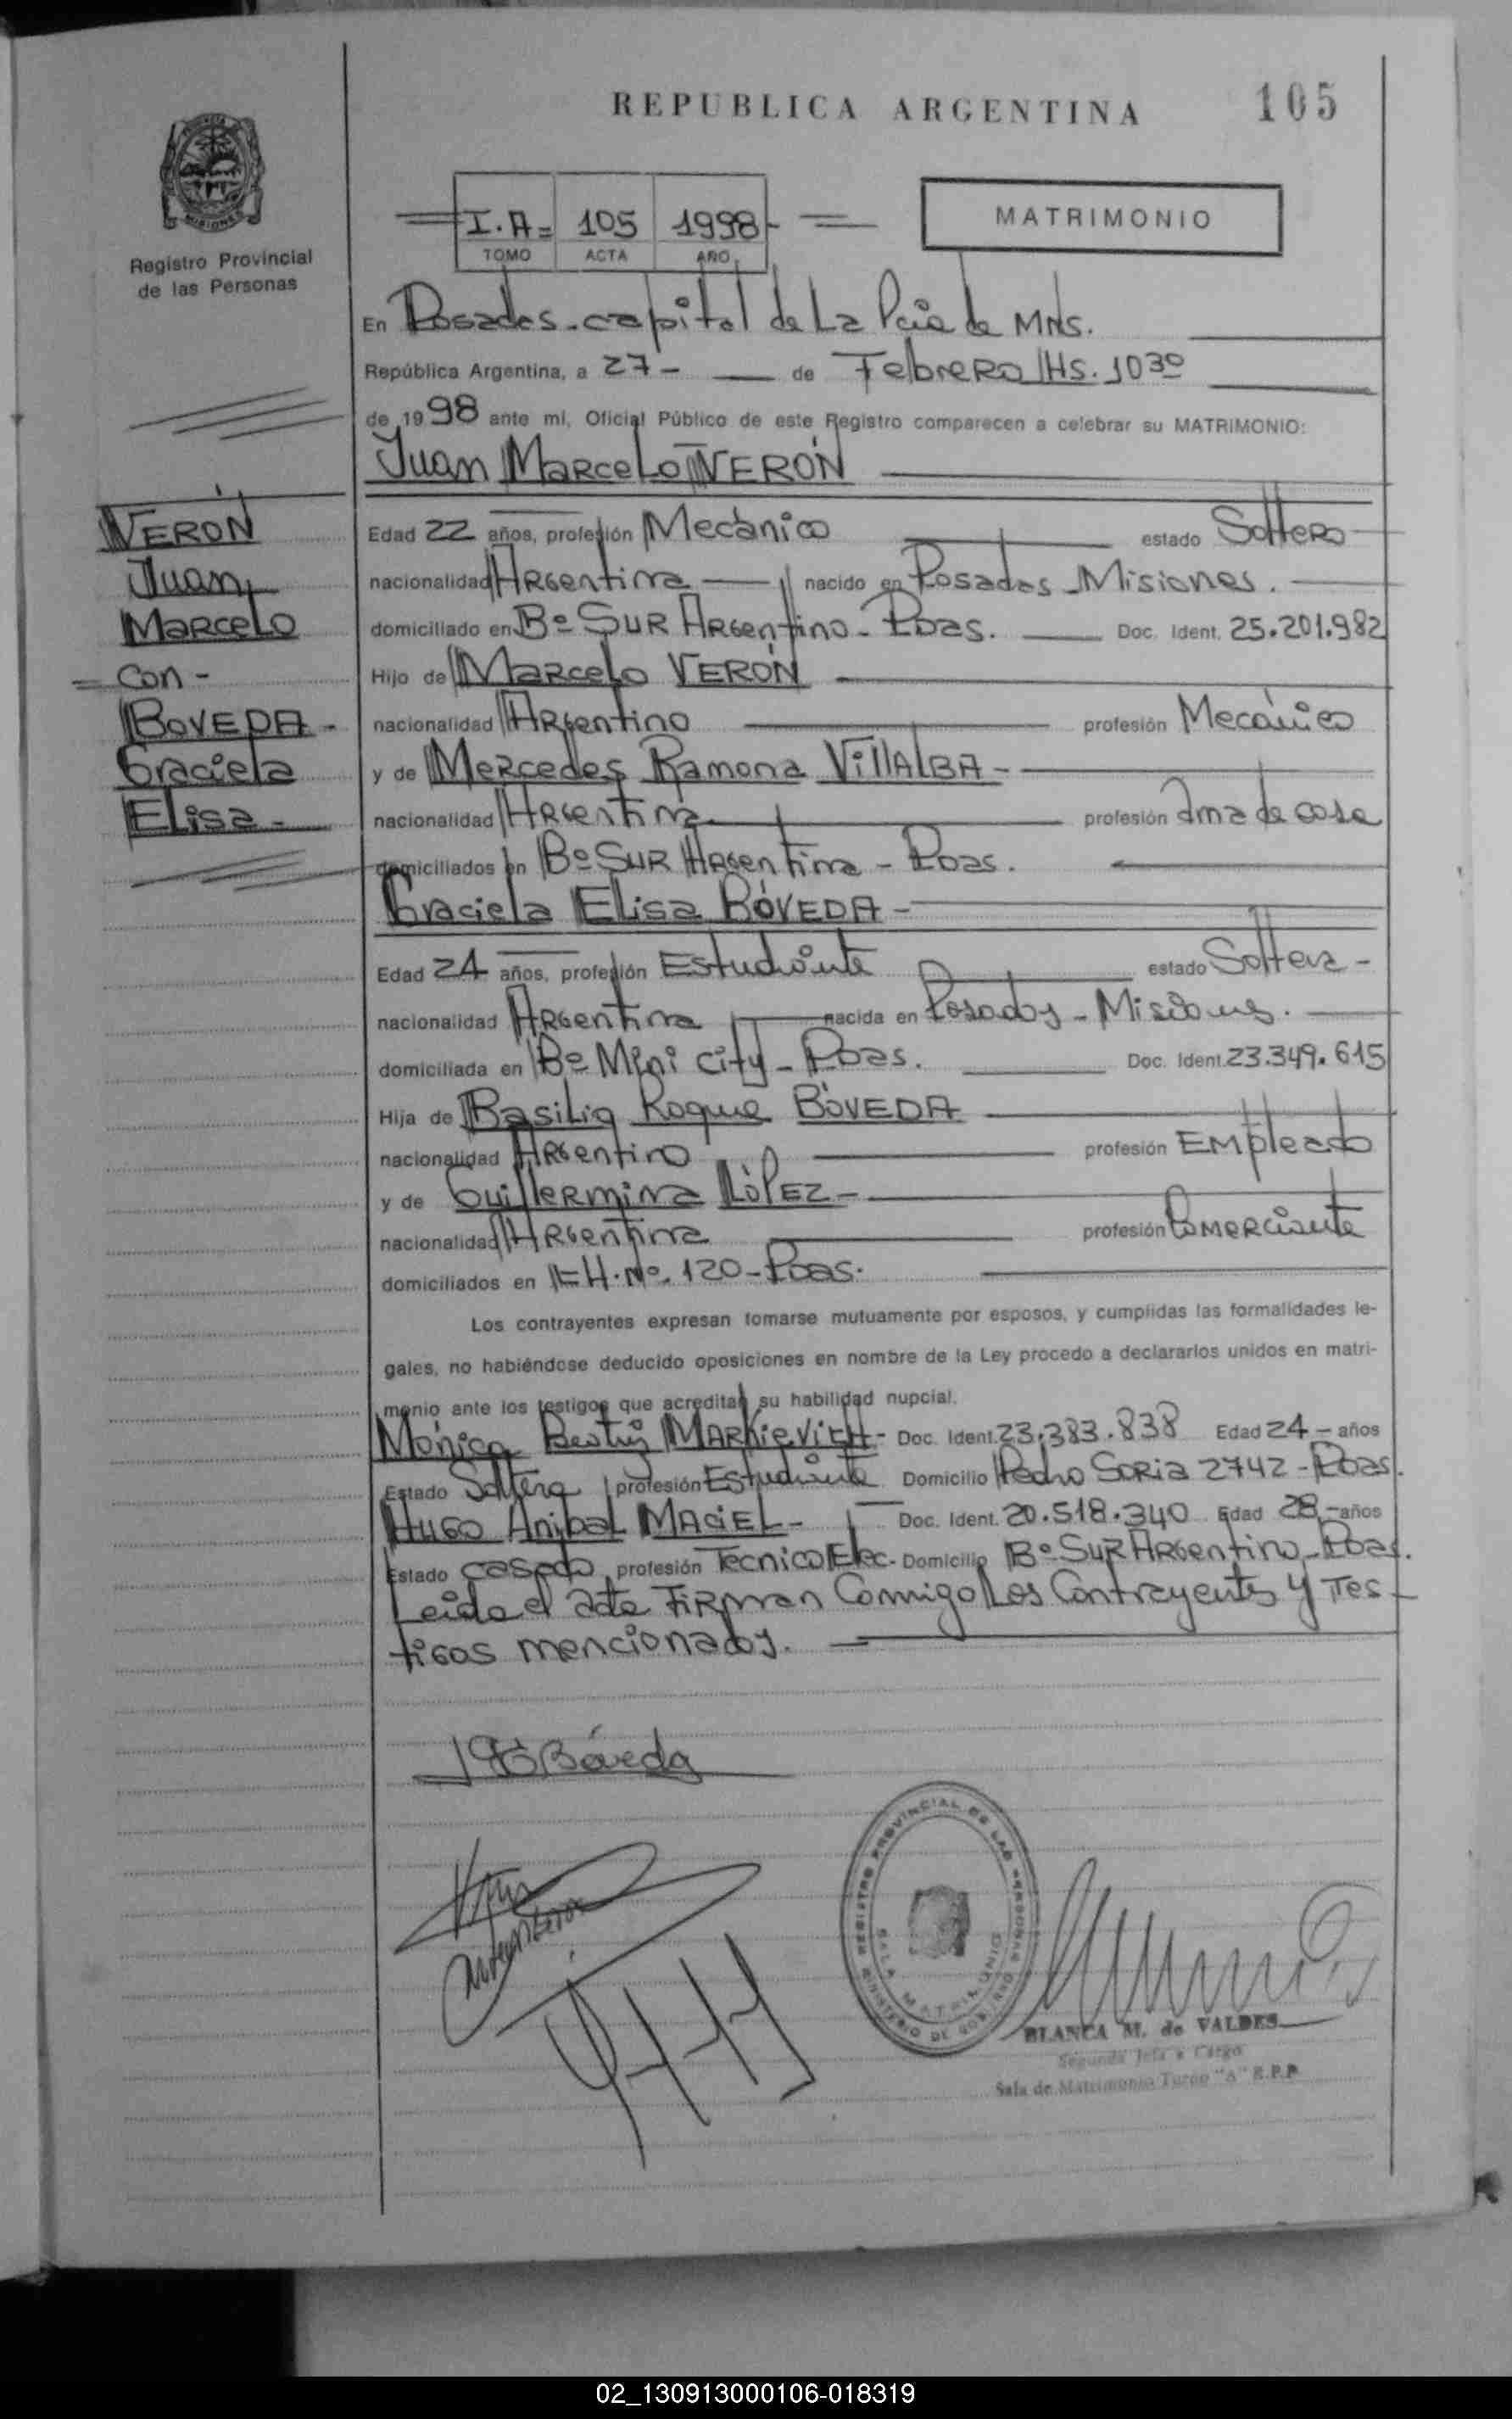 REPUBLICA ARGENTINA
105
Registro Provincial
de las Personas
I.A= 105 1998-
TOMO ACTA AÑO
MATRIMONIO
En Posadas-capital de La Pcia de MNS.
República Argentina, a 27- de Febrero Hs. 1030
de 1998 ante mi, Oficial Público de este Registro comparecen a celebrar su MATRIMONIO:
Juan Marcelo VERÓN
VERÓN
Juan
Marcelo
Con -
BOVEDA -
Graciela
Elisa -
Edad 22 años, profesión Mecánico estado Soltero
nacionalidad Argentina nacido en Posadas - Misiones.
domiciliado en Bº Sur Argentino - Pdas. Doc. Ident. 25.201.982
Hijo de Marcelo VERÓN
nacionalidad Argentino profesión Mecánico
y de Mercedes Ramona VillALBA -
nacionalidad Argentina profesión Ama de casa
domiciliados en Bº Sur Argentina - Pdas.
Graciela Elisa BÓVEDA -
Edad 24 años, profesión Estudiante estado Soltera -
nacionalidad Argentina nacida en Posadas - Misiones.
domiciliada en Bº Mini City - Pdas. Doc. Ident. 23.349.615
Hija de Basilio Roque BÓVEDA
nacionalidad Argentino profesión Empleado
y de Guillermina LÓPEZ -
nacionalidad Argentina profesión Comerciante
domiciliados en CH. Nº 120 - Pdas.
Los contrayentes expresan tomarse mutuamente por esposos, y cumplidas las formalidades le-
gales, no habiéndose deducido oposiciones en nombre de la Ley procedo a declararlos unidos en matri-
monio ante los testigos que acreditan su habilidad nupcial.
Mónica Beatriz MARKievicH - Doc. Ident. 23.383.838 Edad 24 - años
Estado Soltera profesión Estudiante Domicilio Pedro Soria 2742 - Pdas.
Hugo Anibal MACIEL - Doc. Ident. 20.518.340 Edad 28 - años
Estado casado profesión Tecnico Elec. Domicilio Bº Sur Argentino - Pdas.
Leida el acta Firman Conmigo Los Contrayentes y Tes -
tigos mencionados.
Bóveda
REGISTRO PROVINCIAL DE LAS PERSONAS
MINISTERIO DE GOBIERNO
SALA MATRIMONIO
BLANCA M. de VALDES
Segunda Jefa a Cargo
Sala de Matrimonio Turno "A" R.P.P
02_130913000106-018319